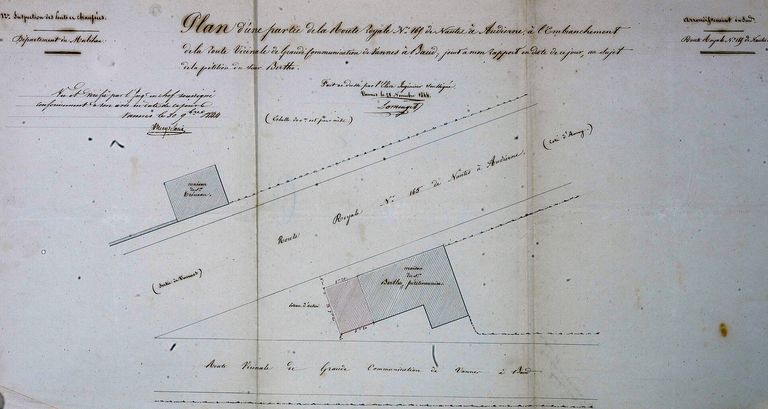 Inspection des Ponts et chaussées.
Département du Morbihan
Plan d'une partie de la Route Royale N.º 165 de Nantes à Audierne, à l'Embranchement
de la route Vicinale de Grande Communication de Vannes à Baud, joint à mon rapport en date de ce jour, au sujet
de la pétition du sieur Berthe.
Route Royale N.º 165 de Nantes
Fait et dressé par l'Élève Ingénieur soussigné
Vannes le 28 Novembre 1844
Vu et vérifié par l'Ing. en chef soussigné
conformément à son avis en date de ce jour
Vannes le 30 9bre 1844
(côté d'Auray)
maison
du Sr
Route Royale N.º 165 de Nantes à Audierne.
(Sortie de Vannes)
maison
du Sr
Berthe, pétitionnaire.
Route Vicinale de Grande Communication de Vannes à Baud